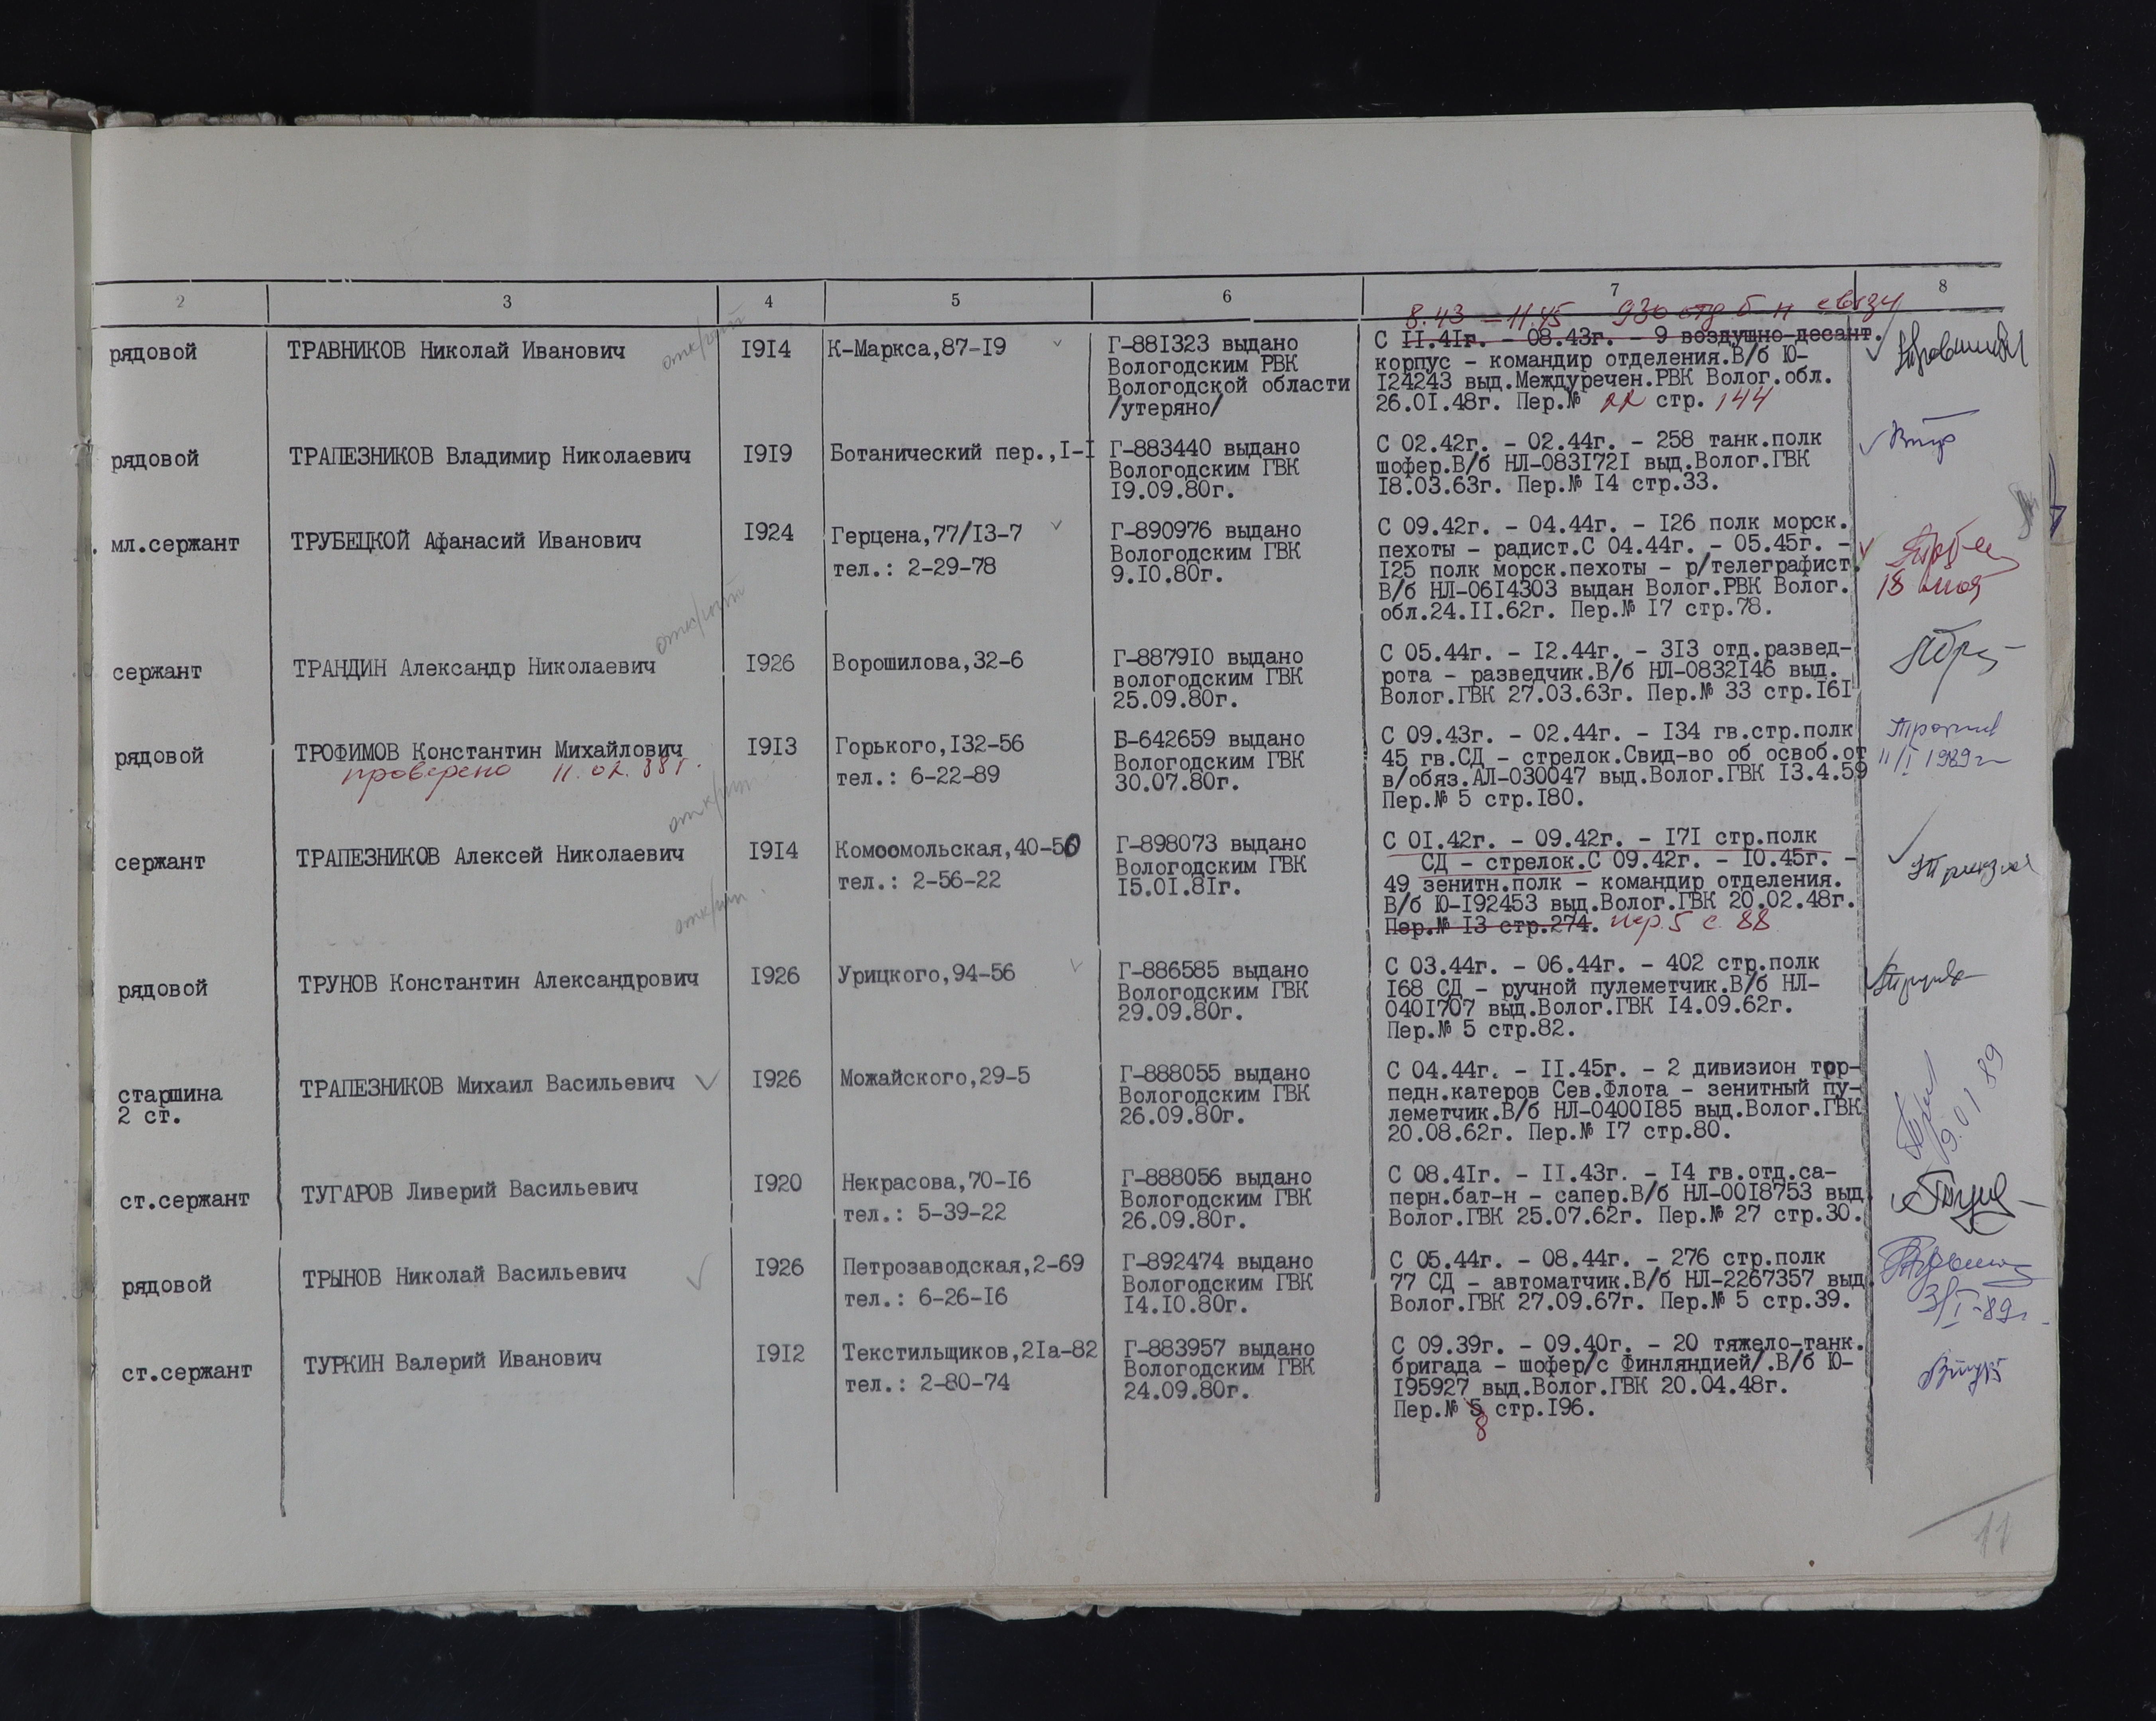 2 3 4 5 6 7 8
8.43 – 11.45 930 отд б-н связи
рядовой ТРАВНИКОВ Николай Иванович I9I4 К-Маркса,87-I9 Г-88I323 выдано С II.4Iг. - 08.43г. - 9 воздушно-десант.
Вологодским РВК корпус - командир отделения.В/б Ю-
Вологодской области I24243 выд.Междуречен.РВК Волог.обл.
/утеряно/ 26.0I.48г. Пер.№ 22 стр. 144
рядовой ТРАПЕЗНИКОВ Владимир Николаевич I9I9 Ботанический пер.,I-I Г-883440 выдано С 02.42г. - 02.44г. - 258 танк.полк
Вологодским ГВК шофер.В/б НЛ-083I72I выд.Волог.ГВК
I9.09.80г. I8.03.63г. Пер.№ I4 стр.33.
мл.сержант ТРУБЕЦКОЙ Афанасий Иванович I924 Герцена,77/I3-7 Г-890976 выдано С 09.42г. - 04.44г. - I26 полк морск.
тел.: 2-29-78 Вологодским ГВК пехоты - радист.С 04.44г. - 05.45г. -
9.I0.80г. I25 полк морск.пехоты - р/телеграфист.
В/б НЛ-06I4303 выдан Волог.РВК Волог.
обл.24.II.62г. Пер.№ I7 стр.78.
сержант ТРАНДИН Александр Николаевич I926 Ворошилова,32-6 Г-8879I0 выдано С 05.44г. - I2.44г. - 3I3 отд.развед-
вологодским ГВК рота - разведчик.В/б НЛ-0832I46 выд.
25.09.80г. Волог.ГВК 27.03.63г. Пер.№ 33 стр.I6I
рядовой ТРОФИМОВ Константин Михайлович I9I3 Горького,I32-56 Б-642659 выдано С 09.43г. - 02.44г. - I34 гв.стр.полк
проверено 11.02.88г. тел.: 6-22-89 Вологодским ГВК 45 гв.СД - стрелок.Свид-во об освоб.от 11/I 1989г
30.07.80г. в/обяз.АЛ-030047 выд.Волог.ГВК I3.4.59
Пер.№ 5 стр.I80.
сержант ТРАПЕЗНИКОВ Алексей Николаевич I9I4 Комоомольская,40-50 Г-898073 выдано С 0I.42г. - 09.42г. - I7I стр.полк
тел.: 2-56-22 Вологодским ГВК СД - стрелок.С 09.42г. - I0.45г. -
I5.0I.8Iг. 49 зенитн.полк - командир отделения.
В/б Ю-I92453 выд.Волог.ГВК 20.02.48г.
Пер.№ I3 стр.274. пер.5 с. 88
рядовой ТРУНОВ Константин Александрович I926 Урицкого,94-56 Г-886585 выдано С 03.44г. - 06.44г. - 402 стр.полк
Вологодским ГВК I68 СД - ручной пулеметчик.В/б НЛ-
29.09.80г. 040I707 выд.Волог.ГВК I4.09.62г.
Пер.№ 5 стр.82.
старшина ТРАПЕЗНИКОВ Михаил Васильевич I926 Можайского,29-5 Г-888055 выдано С 04.44г. - II.45г. - 2 дивизион тор-
2 ст. Вологодским ГВК педн.катеров Сев.Флота - зенитный пу-
26.09.80г. леметчик.В/б НЛ-0400I85 выд.Волог.ГВК
20.08.62г. Пер.№ I7 стр.80.
ст.сержант ТУГАРОВ Ливерий Васильевич I920 Некрасова,70-I6 Г-888056 выдано С 08.4Iг. - II.43г. - I4 гв.отд.са-
тел.: 5-39-22 Вологодским ГВК перн.бат-н - сапер.В/б НЛ-00I8753 выд
26.09.80г. Волог.ГВК 25.07.62г. Пер.№ 27 стр.30.
рядовой ТРЫНОВ Николай Васильевич I926 Петрозаводская,2-69 Г-892474 выдано С 05.44г. - 08.44г. - 276 стр.полк
тел.: 6-26-I6 Вологодским ГВК 77 СД - автоматчик.В/б НЛ-2267357 выд
I4.I0.80г. Волог.ГВК 27.09.67г. Пер.№ 5 стр.39. 3/I-89г.
ст.сержант ТУРКИН Валерий Иванович I9I2 Текстильщиков,2Iа-82 Г-883957 выдано С 09.39г. - 09.40г. - 20 тяжело-танк.
тел.: 2-80-74 Вологодским ГВК бригада - шофер/с Финляндией/.В/б Ю-
24.09.80г. I95927 выд.Волог.ГВК 20.04.48г.
Пер.№ 5 стр.I96.
8
11